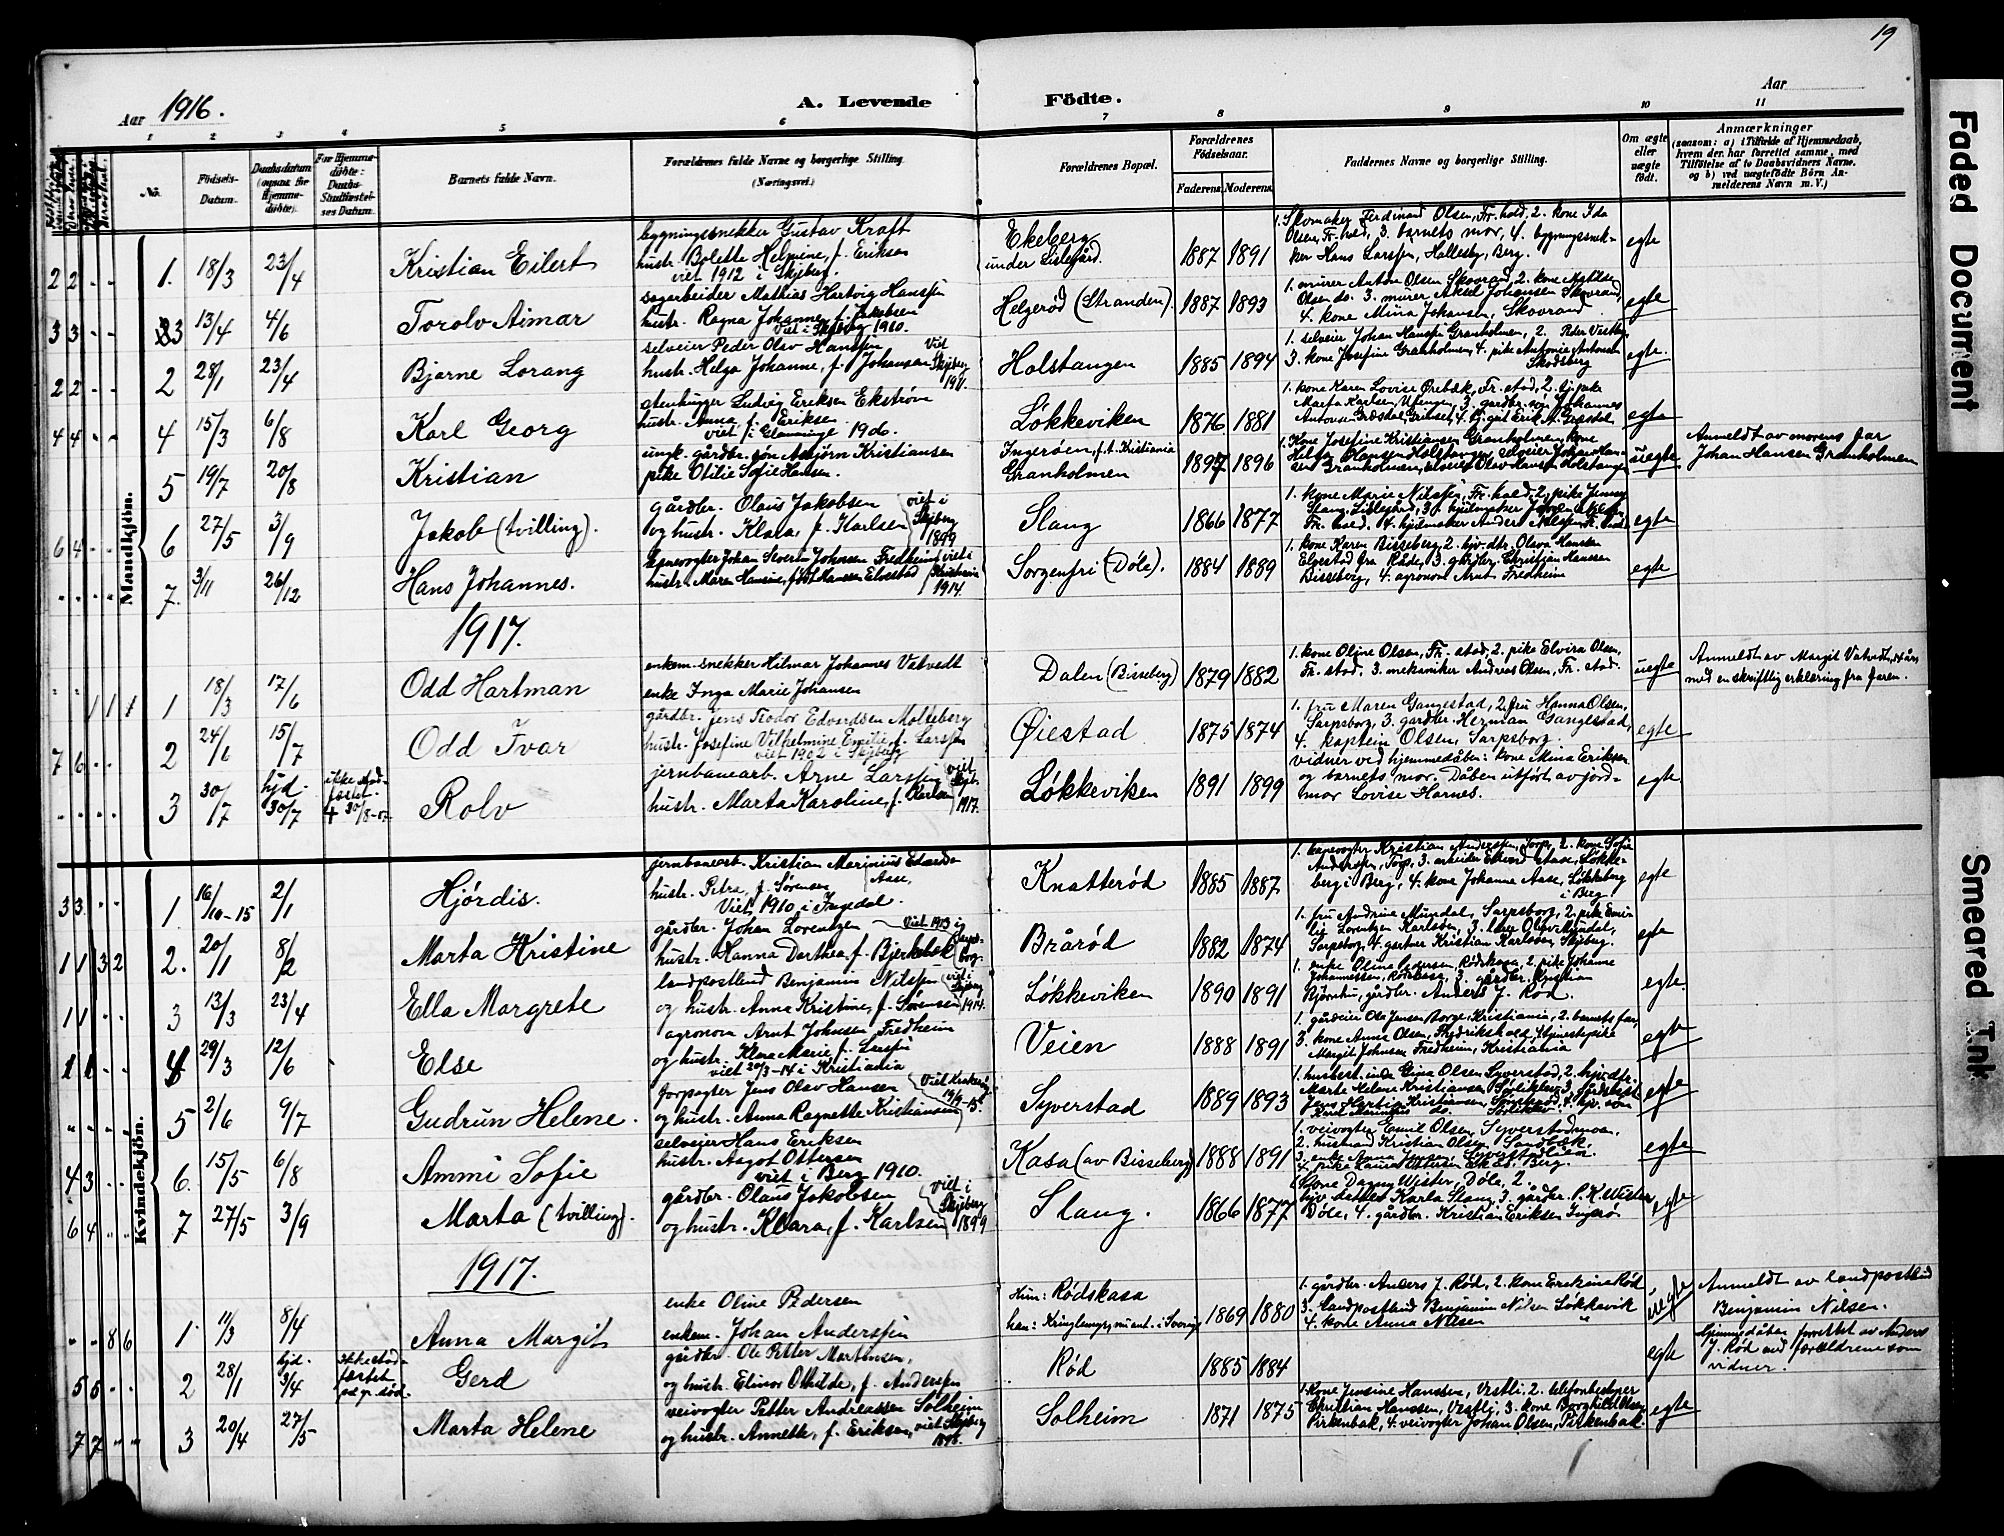 19
Aar 1916.
A. Levende Födte.
Aar
1 2 3 4 5 6 7 8 9 10 11
No.
Födsels-Datum.
Daabsdatum (ogsaa for Hjemmedöbte).
For Hjemmedöbte: Daabs Stadfæstelses Datum.
Barnets fulde Navn.
Forældrenes fulde Navne og borgerlige Stilling.
(Næringsvei.)
Forældrenes Bopæl.
Forældrenes Födselsaar.
Faderens. Moderens.
Faddernes Navne og borgerlige Stilling.
Om ægte eller uægte födt.
Anmærkninger
(saasom: a) i Tilfælde af Hjemmedaab,
hvem der har forrettet samme, med
Tilföielse af to Daabsvidners Navne.
og b) ved uægtefödte Börn Anmelderens Navn m. V.)
Mandkjön.
2 2 " " 1. 18/3 23/4 Kristian Eilert
bygningssnekker Gustav Kraft
hustr. Bolette Helmine, f. Eriksen
viet 1912 i Skjeberg.
Ekeberg
under Lislegård.
1887 1891
1. Skomaker Ferdinand Olsen, Fr.hald, 2. kone Ida
Olsen, Fr.hald, 3. barnets mor, 4. bygningssnekker Hans Larssen, Hallesby, Berg.
egte
3 3 " " 3 13/4 4/6 Torolv Aimar
sagarbeider Mathias Hartvig Hanssen
hustr. Ragna Johanne, f. Jakobsen
viet i Skjeberg 1910.
Helgerød (Stranden).
1887 1893
1. murer Anton Olsen Skovrand, 2. kone
Olsen do. 3. murer Aksel Johansen Skovrand,
4. kone Mina Johansen, Skovrand.
egte
2 2 " " 2 28/1 23/4 Bjarne Lorang
selveier Peder Olav Hanssen
hustr. Helga Johanne, f. Johansen
Viet Skjeberg 1911.
Holstangen
1885 1894
1. selveier Johan Hanssen Granholmen, 2. Peder
3. kone Josefine Granholmen, 4. pike Antonie Antonsen
Skodsberg
egte.
4 4 " " 4 15/3 6/8 Karl Georg
stenhugger Ludvig Eriksen Ekström
hustr. Anna, f. Eriksen
viet i Glemminge 1906.
Løkkeviken
1876 1881
1. kone Karen Lovise Ørebæk, Fr.stad, 2. tj.pike
Marta Karlsen, 3. gårdbr. søn Johannes
egte
5 19/7 20/8 Kristian
ungk. gårdbr. søn Asbjørn Kristiansen
pike Otilie Sofie Hansen.
Ingerøen, f.t. Kristiania
Granholmen
1897 1896
1. Kone Josefine Kristiansen Granholmen, kone
Helga Olausen Holstangen, selveier Johan Hansen Granholmen, selveier Olav Hansen Holstangen
uegte
Anmeldt av morens far
Johan Hansen Granholmen
6 4 " " 6 27/5 3/9 Jakob (tvilling).
gårdbr. Olaus Jakobsen
og hustr. Klara, f. Karlsen
viet i Skjeberg 1899
Slang
1866 1877
1. kone Marie Nilssen, Fr.hald, 2. pike Jenny
Slang, Lislegård, 3. hjulmaker
Fr.hald, 4. hjulmaker Anders Nilssen
egte
" " " " 7. 3/11 26/12 Hans Johannes.
Johan Severin Johnsen Fredheim
hustr. Maren Hansine, født Hansen Elgestad
viet i Kristiania 1914.
Sorgenfri (Døle).
1884 1889
1. kone Karen Bisseberg, 2. hjv.dtr. Olava Hansen
Elgestad fra Råde, 3. gårdbr. Christian Hanssen
Bisseberg, 4. agronom Arnt Fredheim
egte
1917.
" " 1 1 1 18/3 17/6 Odd Hartman
enkem. snekker Hilmar Johannes Vatvedt
enke Inga Marie Johansen
Dalen (Bisseberg)
1879 1882
1. kone Oline Olsen, Fr.stad, 2. pike Elvira Olsen,
Fr.stad, 3. mekaniker Andreas Olsen, Fr.stad.
uegte
Anmeldt av Margit Vatvedt, 14 års
med en skriftlig erklæring fra faren.
7 6 " " 2 24/6 15/7 Odd Ivar
gårdbr. Jens Teodor Edvardsen Molteberg
hustr. Josefine Vilhelmine Emilie, f. Larssen
viet 1902 i Skjeberg
Øiestad
1875 1874
1. fru Maren Gangestad, 2. fru Hanna Olsen,
Sarpsborg, 3. gårdbr. Herman Gangestad,
4. kaptein Olsen, Sarpsborg.
egte
" " " " 3 30/7 hjd. 30/7
ikke stadfæstet
Rolv
jernbanearb. Arne Larssen
hustr. Marta Karoline, f. Karlsen
viet Skjb. 1917.
Løkkeviken
1891 1899
vidner ved hjemmedåben: kone Mina Eriksen
og barnets mor. Dåben utført av jordmor Lovise Harnes.
egte
Kvindekjön.
3 3 " " 1. 16/10-15 2/1 Hjørdis.
jernbanearb. Kristian Marinius Edvardsen Aase,
hustr. Petra, f. Sørensen
Viet 1910 i Ingedal.
Knatterød
1885 1887
1. banevogter Kristian Anderssen, Torp, 2. kone Sofie
Anderssen, Torp, 3. arbeider Edvard Aase, Løkkeberg i Berg, 4. kone Johanne Aase, Løkkeberg
i Berg
egte
1 1 3 2 2. 20/1 8/2 Marta Kristine
gårdbr. Johan Lorentzen
hustr. Hanna Dorthea, f. Bjerkebæk
Viet 1913 i Sarpsborg.
Brårød
1882 1874
1. fru Andrine Mundal, Sarpsborg, 2. pike Emilie Lorentzen Karlsøen, 3. Olav Mundal,
Sarpsborg, 4. gartner Kristian Karlsøen, Skjeberg.
egte
1 1 " " 3 13/3 23/4 Ella Margrete
landpostbud Benjamin Nilssen
og hustr. Anna Kristine, f. Sørensen
viet i Skjeberg 1914.
Løkkeviken
1890 1891
1. enke Oline Pedersen, Rødskasa, 2. pike Johanne
Johannessen, Rødskasa, 3. gårdbr. Kristian
Bjørnhu, gårdbr. Anders J. Rød.
egte.
1 1 4 29/3 12/6 Else
agronom Arnt Johnsen Fredheim
og hustr. Klara Marie, f. Larssen
viet 20/3-14 i Kristiania
Veien
1888 1891
1. gårdeier Ole Jensen Borge, Kristiania, 2. barnets far,
3. kone Anna Olsen, Fredrikshald,
Margit Johnsen Fredheim, Kristiania
egte
" " " " 5 2/6 9/7 Gudrun Helene.
forpagter Jens Olav Hansen
og hustr. Anna Ragnette Kristiansen
Syverstad
1889 1893
1. husbest.inde Gina Olsen Syverstad, 2. hjv.dtr.
Marte Helene Kristiansen Sørlikleven,
egte
4 3 6. 15/5 6/8 Ammi Sofie
selveier Hans Eriksen
hustr. Aagot Ottersen
viet i Berg 1910.
Kasa (av Bisseberg)
1888 1891
1. veivogter Emil Olsen, Syverstadmoen,
2. husmand Kristian Olsen, Sandbæk,
3. enke Anna Jensen,
4. pike Laura Ottersen Ek Ed, Berg.
egte
6 4 " " 7 27/5 3/9 Marta (tvilling).
gårdbr. Olaus Jakobsen
og hustr. Klara, f. Karlsen
viet i Skjeberg 1899
Slang.
1866 1877
1. kone Dagny Wister, Døle, 2.
hjv. datter Karla Slang, 3. gårdbr. P. K. Wister
Døle, 4. gårdbr. Kristian Eriksen Ingerø
egte
1917.
" " 8 6 1. 11/3 8/4 Anna Margit
enke Oline Pedersen
enkem. Johan Anderssen
Hun: Rødskasa
han:
1869 1880
1. gårdbr. Anders J. Rød, 2. kone Erikina Rød
3. Landpostbud Benjamin Nilsen Løkkevik
4. kone Anna Nilsen "
uegte
Anmeldt av landpostbud
Benjamin Nilsen.
5 5 " " 2 28/1 hjd. 3/4
ikke stadfæstet
Gerd
gårdbr. Ole Petter Martinsen,
og hustr. Elinor Othilde, f. Anderssen
Rød
1885 1884
egte
Hjemmedåben forrettet av Anders
J. Rød med forældrene som
vidner.
7 7 " " 3 20/4 27/5 Marta Helene
veivogter Petter Andreassen Solheim
og hustr. Annette, f. Eriksen, viet Skjeberg
1898.
Solheim
1871 1875
1. Kone Jensine Hanssen, Vestli, 2. telefonbestyrer
Christian Hanssen, Vestli, 3. kone Borghild Olsen
Pirkenbak, 4. veivogter Johan Olsen, Pirkenbak.
egte
Faded Document
Smeared Ink